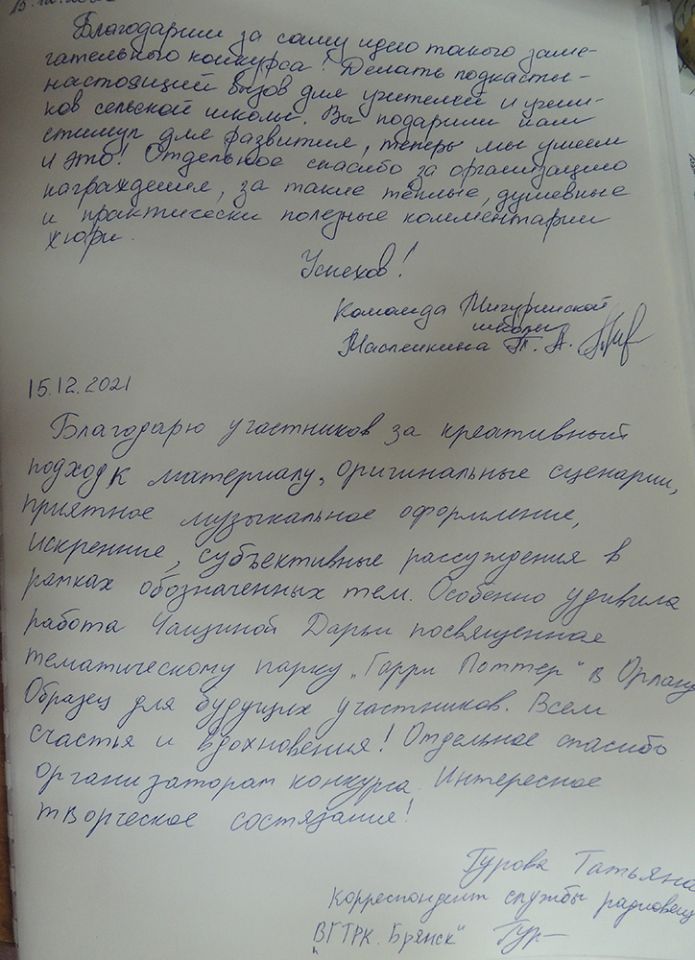 15.12.2021
Благодарим за саму идею такого заме-
чательного конкурса! Делать подкасты -
настоящий вызов для учителей и учени-
ков сельской школы. Вы подарили нам
стимул для развития, теперь мы умеем
и это! Отдельное спасибо за организацию
награждения, за такие тёплые, душевные
и практически полезные комментарии
жюри.
Успехов!
Команда Мичуринской
школы
Масленкина Т. А.
15.12.2021
Благодарю участников за креативный
подход к материалу, оригинальные сценарии,
приятное музыкальное оформление,
искренние, субъективные рассуждения в
рамках обозначенных тем. Особенно удивила
работа Чащиной Дарьи посвященная
тематическому парку "Гарри Поттер" в Орландо
Образец для будущих участников. Всем
счастья и вдохновения! Отдельное спасибо
организаторам конкурса. Интересное
творческое состязание!
Гурова Татьяна
Корреспондент службы радиовещ
ВГТРК "Брянск" Гур